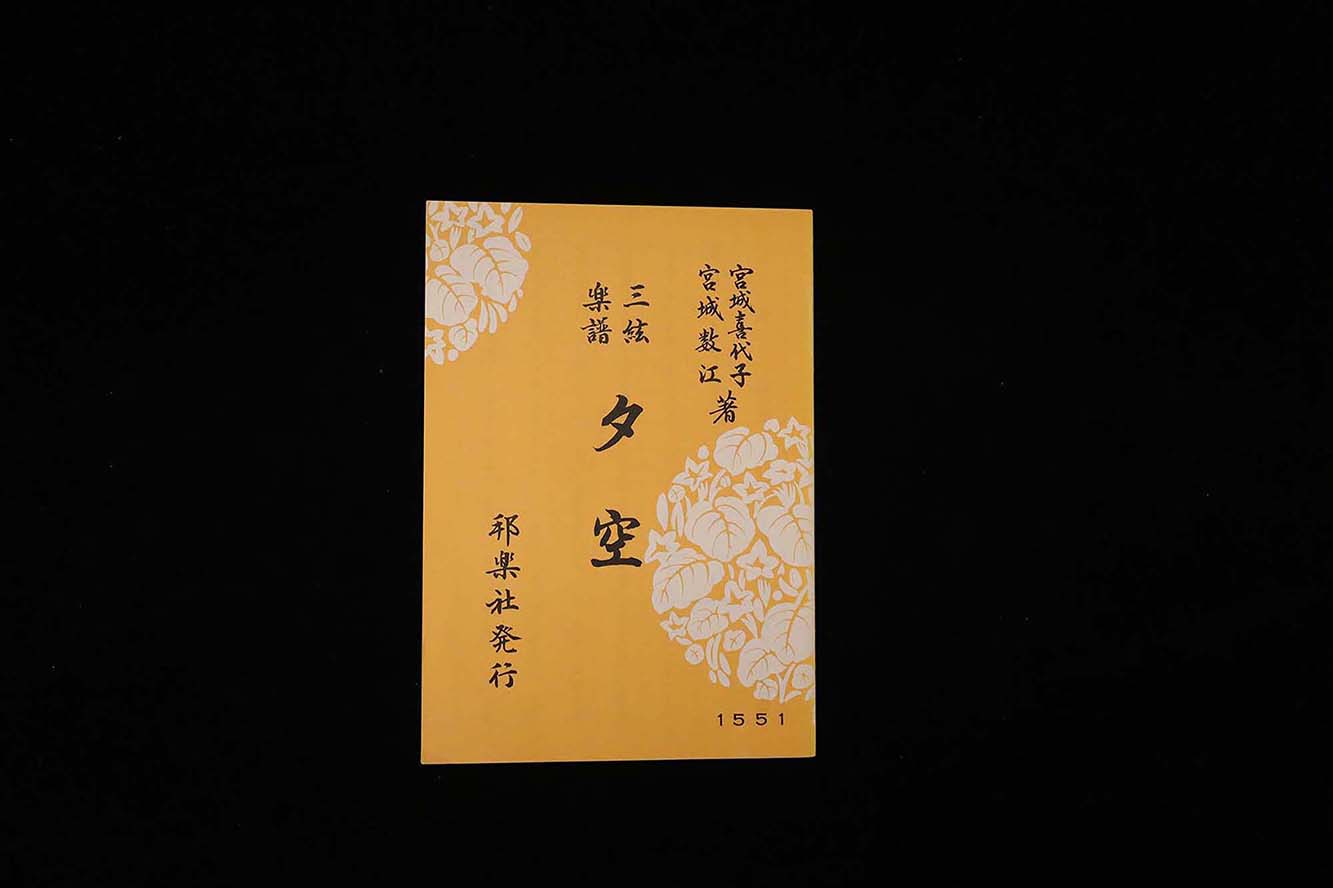 宮城喜代子
宮城数江
著
三絃
楽譜
夕空
邦楽社発行
1551